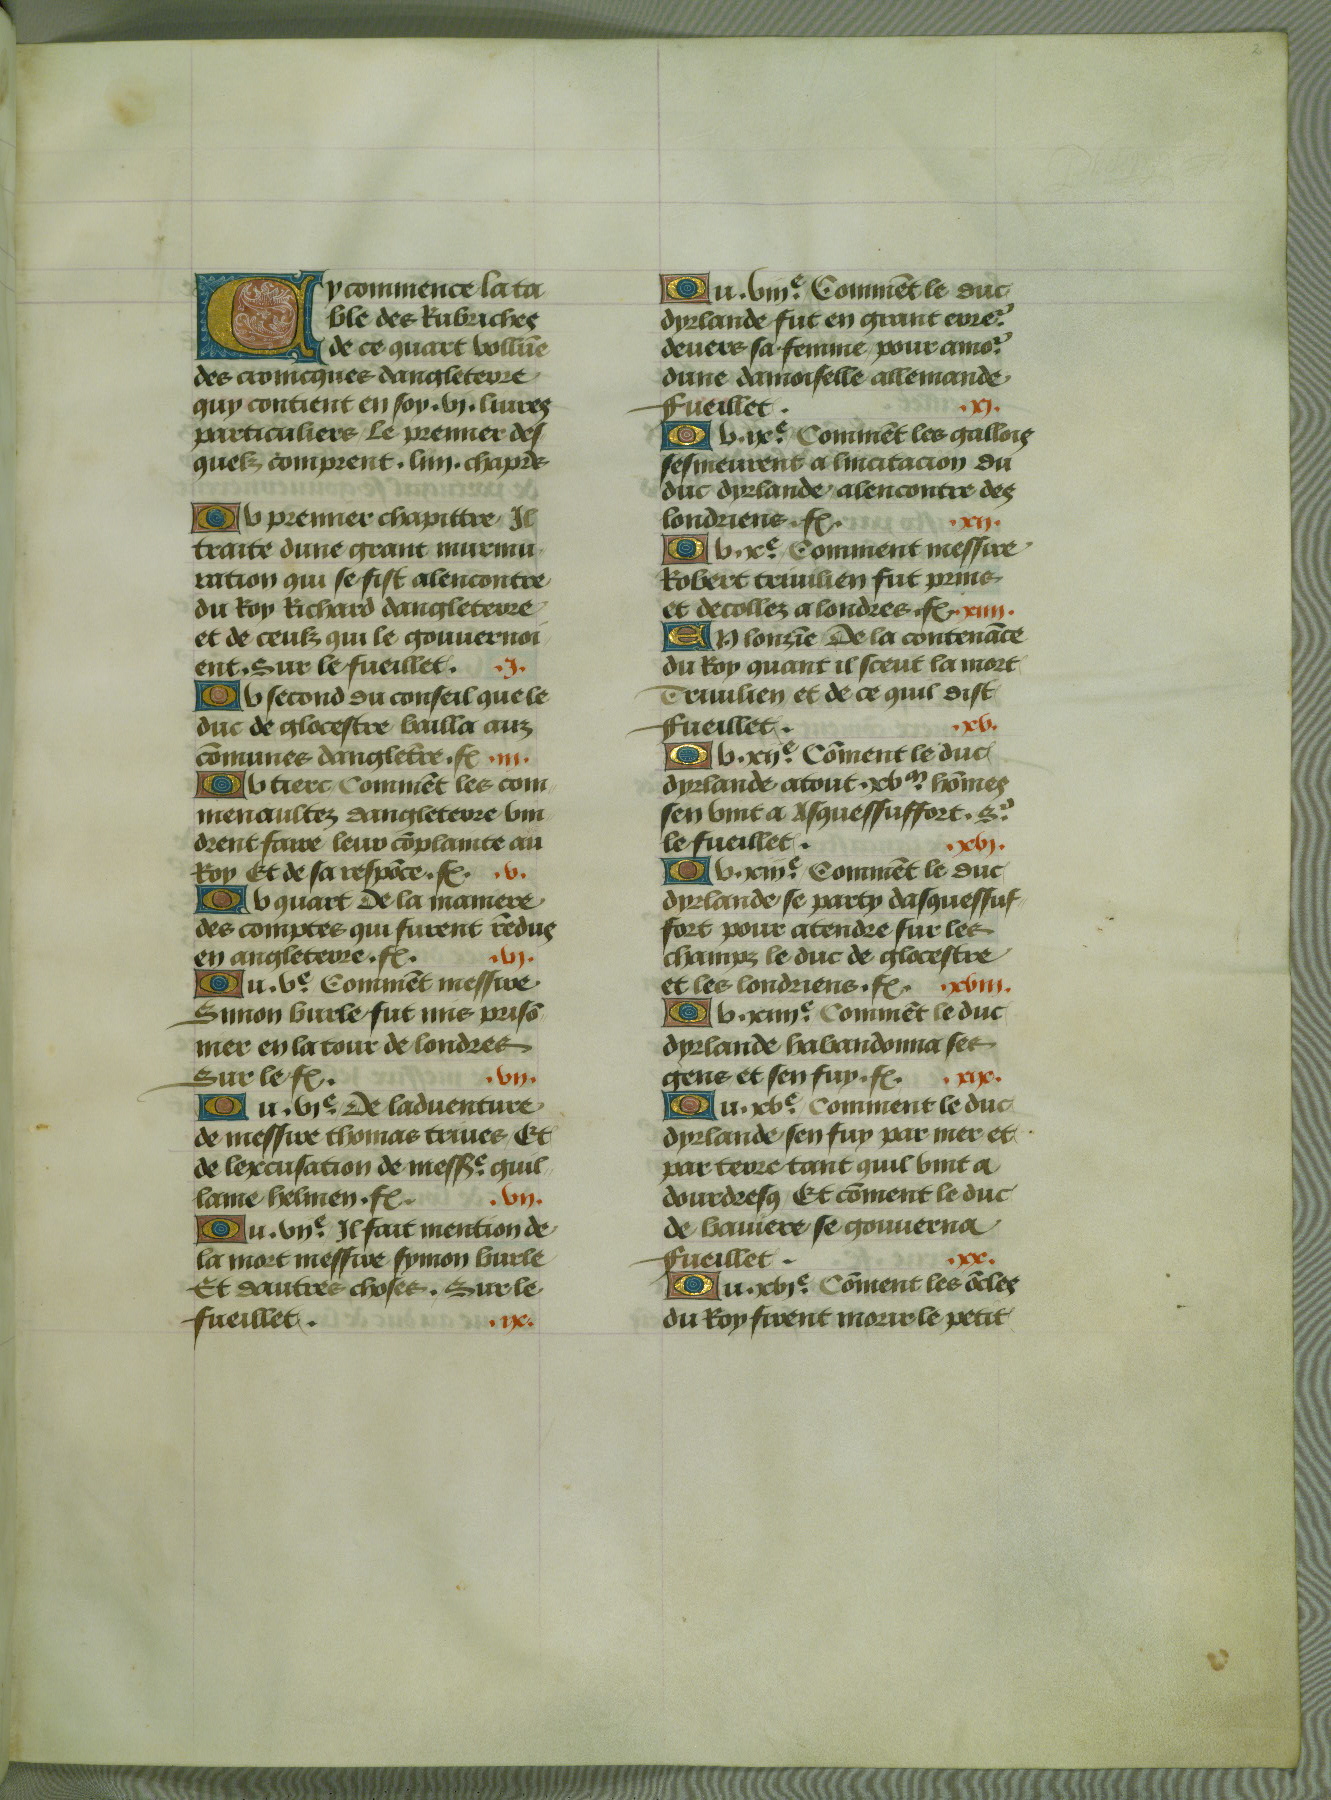 2
Cy commence la ta
ble des Rubriches
de ce quart vollūe
des cronicques dangleterre
quy contient en soy .vj. liures
particuliers Le premier des
quelz comprent .liiii. chapr̄s
Ou premier chapittre Il
traite dune grant murmu
ration qui se fist alencontre
du Roy Richard dangleterre
et de ceulz qui le gouuernoi
ent. Sur le fueillet . .J.
Ou second du conseil que le
duc de glocestre bailla aux
cōmunes dangleťre .fᷓ .iii.
Ou tierc Commēt les com
menaultez dangleterre vin
drent faire leur cōplainte au
Roy Et de sa respōce .fᷓ. .v.
Ou quart De la maniere
des comptes qui furent rēdus
en angleterre .fᷓ. .vj.
Ou .vᵉ. Commēt messire
Simon burle fut mis prisō
nier en la tour de londres
Sur le fᷓ. .vij.
Ou .vjᵉ. De laduenture
de messire thomas triues Et
de lexcusation de messᵉ. guil
lame helmen .fᷓ. .vij.
Ou .vijᵉ. Il fait mention de
la mort messire symon burle
Et dautres choses . Sur le
fueillet . .ix.
Ou .viijᵉ. Commēt le duc
dyrlande fut en grant erreʳ.
deuers sa femme pour amoʳ.
dune damoiselle allemande
ffueillet . .xj.
Ou .ixᵉ. Commēt les gallois
sesmeurent a lincitacion du
duc dyrlande alencontre des
londriens .fᷓ. .xij.
Ou .xᵉ. Comment messire
Robert triuilien fut prins
et decollez a londres .fᷓ. .xiiii.
En lonzīe De la contenāce
du Roy quant il sceut la mort
Triuilien et de ce quil dist
ffueillet . .xv.
Ou .xijᵉ. Cōment le duc
dyrlande atout .xvᵐ. hōmes
sen vint a Asquessuffort . Sʳ.
le fueillet . .xvj.
Ou .xiijᵉ. Commēt le duc
dyrlande se party dasquessuf
fort pour atendre sur les
champz le duc de glocestre
et les londriens .fᷓ. .xviii.
Ou .xiiijᵉ. Commēt le duc
dyrlande habandonna ses
gens et sen fuy .fᷓ. .xix.
Ou .xvᵉ. Comment le duc
dyrlande sen fuy par mer et
par terre tant quil vint a
dourdresq Et cōment le duc
de bauiere se gouuerna
ffueillet . .xx.
Ou .xvjᵉ. Cōment les ōcles
du Roy firent morir le petit